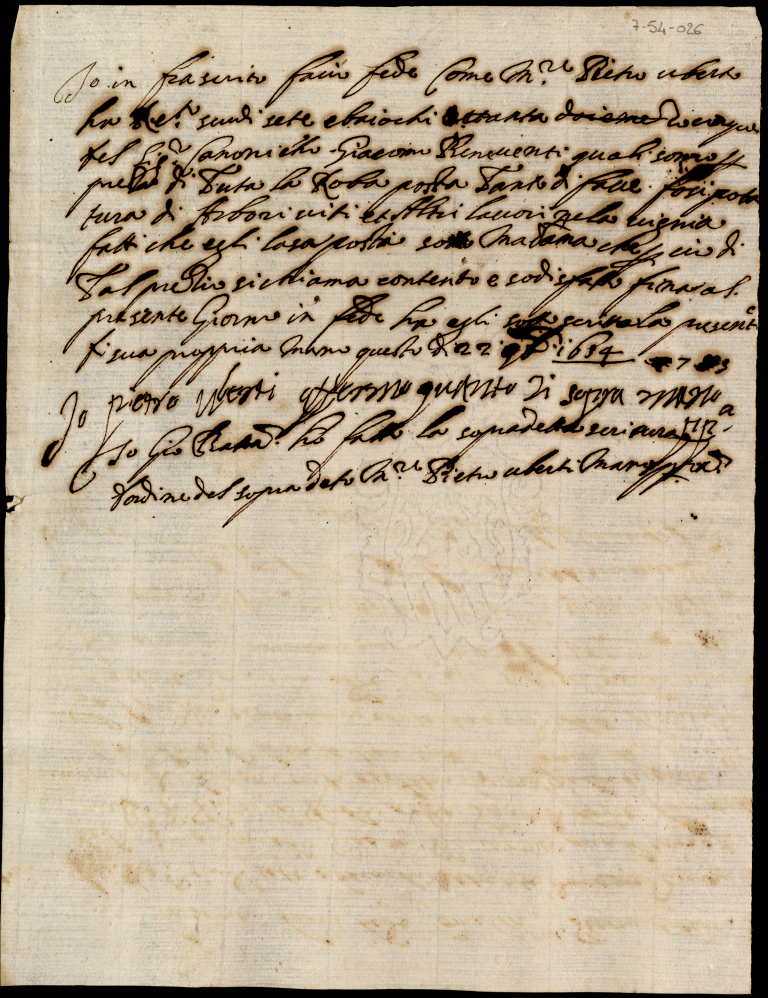 7-54-026
Io in frascrito facio fede Come M.re Pietro uberti
ha Re.to scudi sete e baiochi ottanta
del Sig.r Canonicho Giacomo Beneventi quali sonno p
prezo di Tuta la Roba posta Tanto di fave
tura di Arbori viti et Altri lavori nela vignia
fatti che egli lasa posti soto Madama che
Tal prezio si chiama contento e sodisfato fino al
presente Giorno in fede ha egli sotto scritta la presente
di sua propria mano questo dì 22 9bre 1654
Io pietro uberti affermo quanto di sopra mano pp.a
Io Gio Batta ho fatto la sopradetta scritura
d'ordine del sopra deto M.re Pietro uberti Mano pp.a